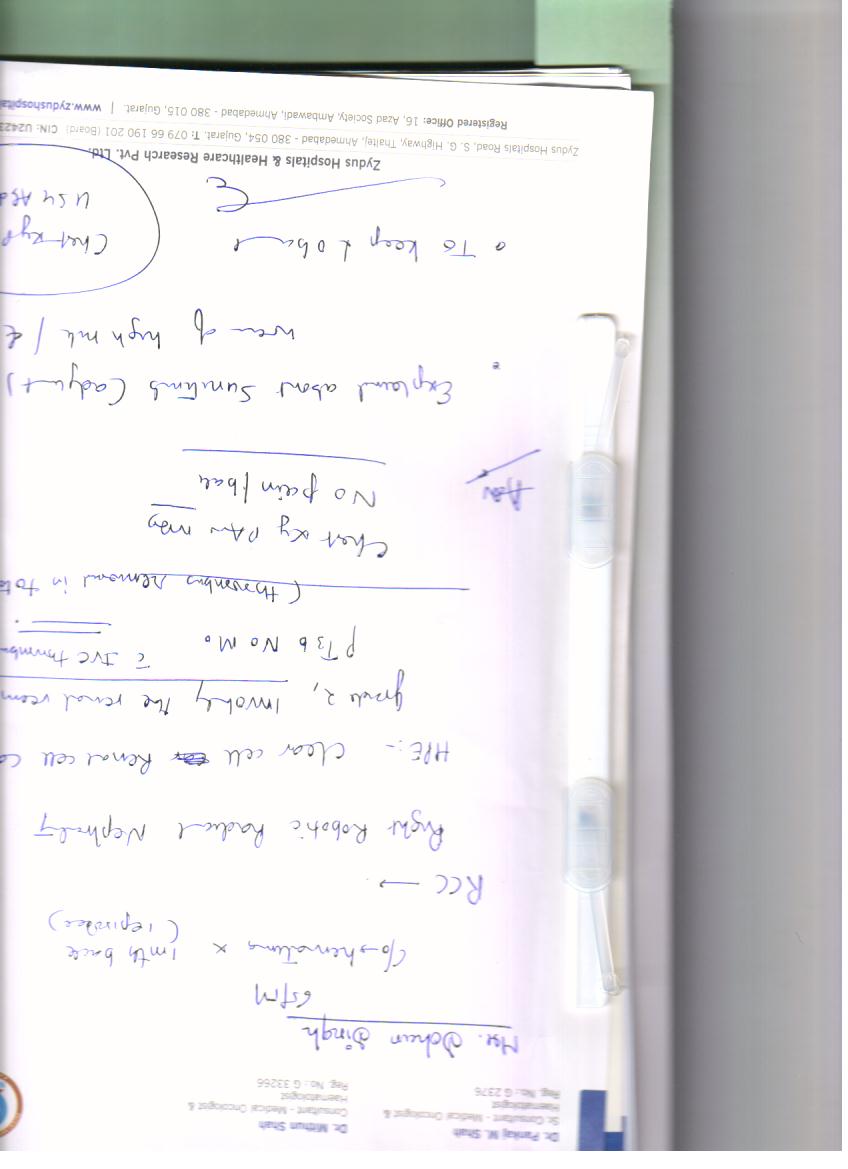 Dr. Pankaj M. Shah
Sr. Consultant - Medical Oncologist &
Haematologist
Reg. No.: G 2376
Dr. Mithun Shah
Consultant - Medical Oncologist &
Haematologist
Reg. No.: G 33266
Mr. Sohan Singh
65/M
c/o hematuria x 1 mth back
(1 episode)
RCC →
Right Robotic Radical Nephrectomy
HPE:- Clear cell Renal cell Ca
grade 2, Involving the renal vein
pT3b N0 M0 c̄ IVC thrombu
(thrombus removed in tota
Chest Xy PA
No pain/
Adv
Explained about Sunitinib (adjuvant)
view of high risk /
To keep & observe
Chest Xy P
USG Abd
Zydus Hospitals & Healthcare Research Pvt. Ltd.
Zydus Hospitals Road, S. G. Highway, Thaltej, Ahmedabad - 380 054, Gujarat. T: 079 66 190 201 (Board) CIN: U2423
Registered Office: 16, Azad Society, Ambawadi, Ahmedabad - 380 015, Gujarat. | www.zydushospital